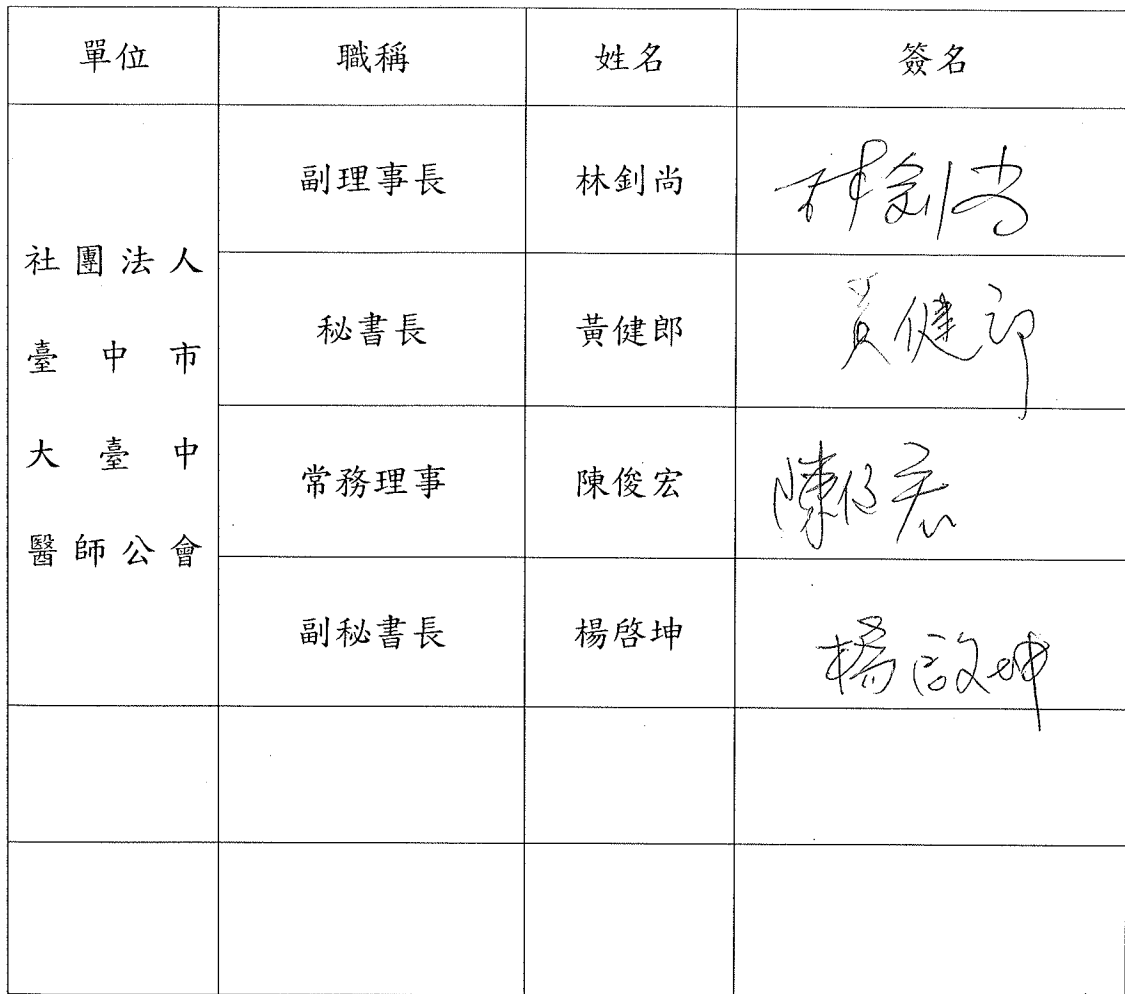 單位 職稱 姓名 簽名
社團法人
臺中市
大臺中
醫師公會
副理事長 林釗尚 林釗尚
秘書長 黃健郎 黃健郎
常務理事 陳俊宏 陳俊宏
副秘書長 楊啓坤 楊啟坤